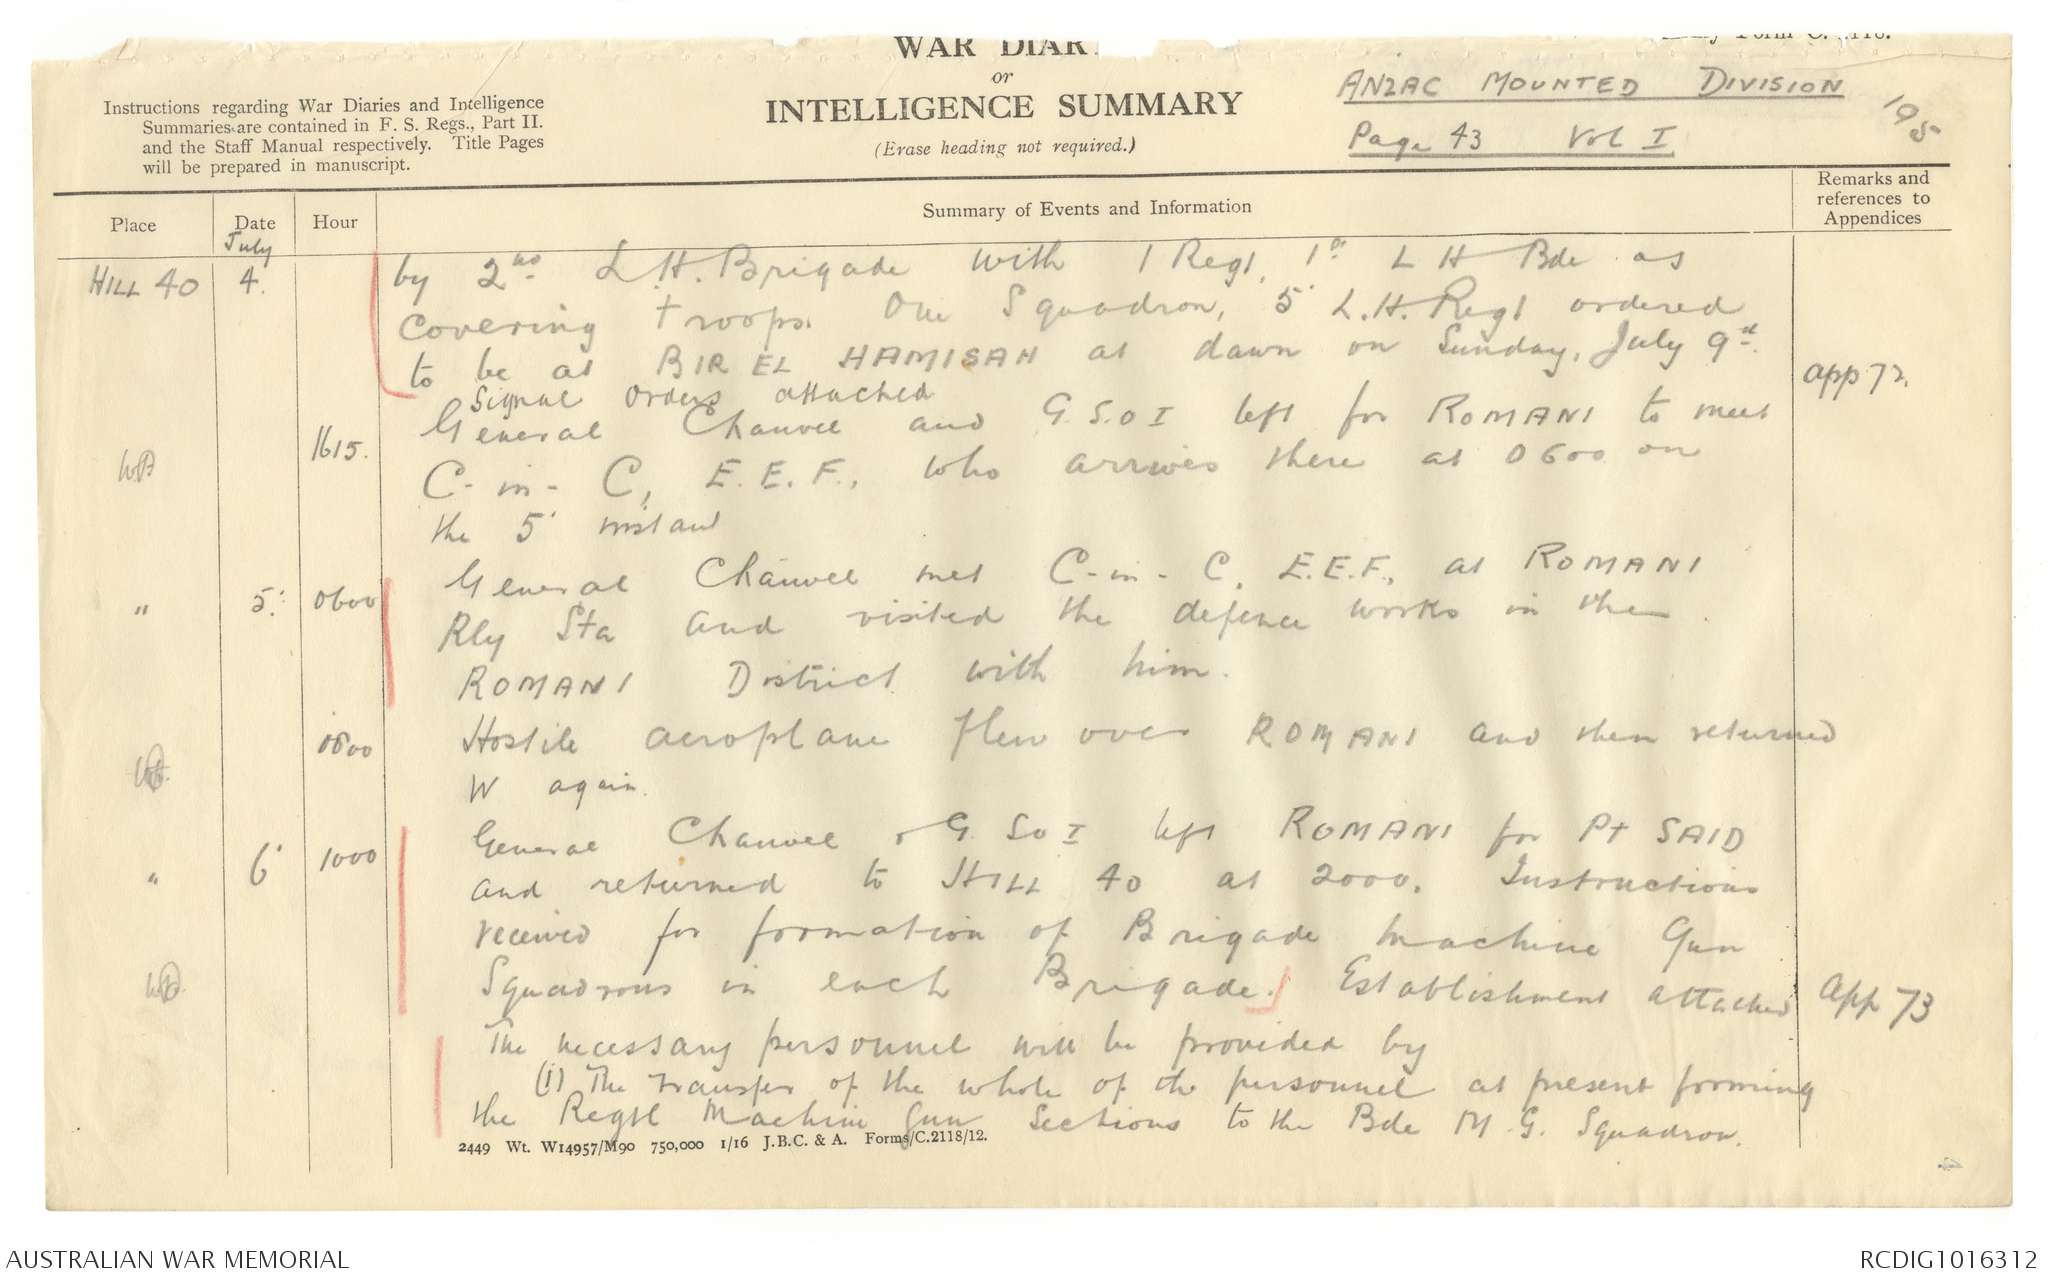 WAR DIARY
or
INTELLIGENCE SUMMARY
(Erase heading not required.)
Instructions regarding War Diaries and Intelligence
Summaries are contained in F. S. Regs., Part II.
and the Staff Manual respectively. Title Pages
will be prepared in manuscript.
Form C. 2118.
ANZAC MOUNTED DIVISION
Page 43 Vol I
195
Place Date Hour Summary of Events and Information Remarks and references to Appendices
July
HILL 40 4. by 2nd L.H. Brigade with 1 Regt, 1st L H Bde as
covering troops. One Squadron, 5' L.H. Regt ordered
to be at BIR EL HAMISAH at dawn on Sunday, July 9th. app 72.
Signal orders attached
1615. General Chauvel and G.S.O I left for ROMANI to meet
C-in-C, E.E.F., who arrives there at 0600 on
the 5' instant
" 5' 0600 General Chauvel met C-in-C, E.E.F., at ROMANI
Rly Sta and visited the defence works in the
ROMANI District with him.
0800 Hostile aeroplane flew over ROMANI and then returned
W again.
" 6' 1000 General Chauvel & G.SO I left ROMANI for Pt SAID
and returned to HILL 40 at 2000. Instructions
received for formation of Brigade Machine Gun
Squadrons in each Brigade. Establishment attached app 73
The necessary personnel will be provided by
(i) The transfer of the whole of the personnel at present forming
the Regtl Machine Gun Sections to the Bde M.G. Squadron.
2449 Wt. W14957/M90 750,000 1/16 J.B.C. & A. Forms/C.2118/12.
AUSTRALIAN WAR MEMORIAL RCDIG1016312